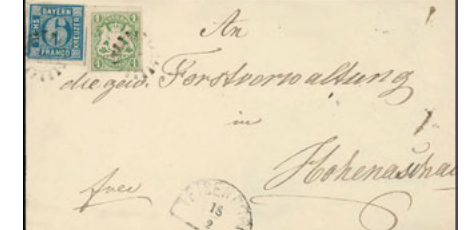 BAYERN
SECHS 6 KREUZER
FRANCO
1 1
1 1
An
die Forstverwaltung
in
Hohenaschau
frei
15
2